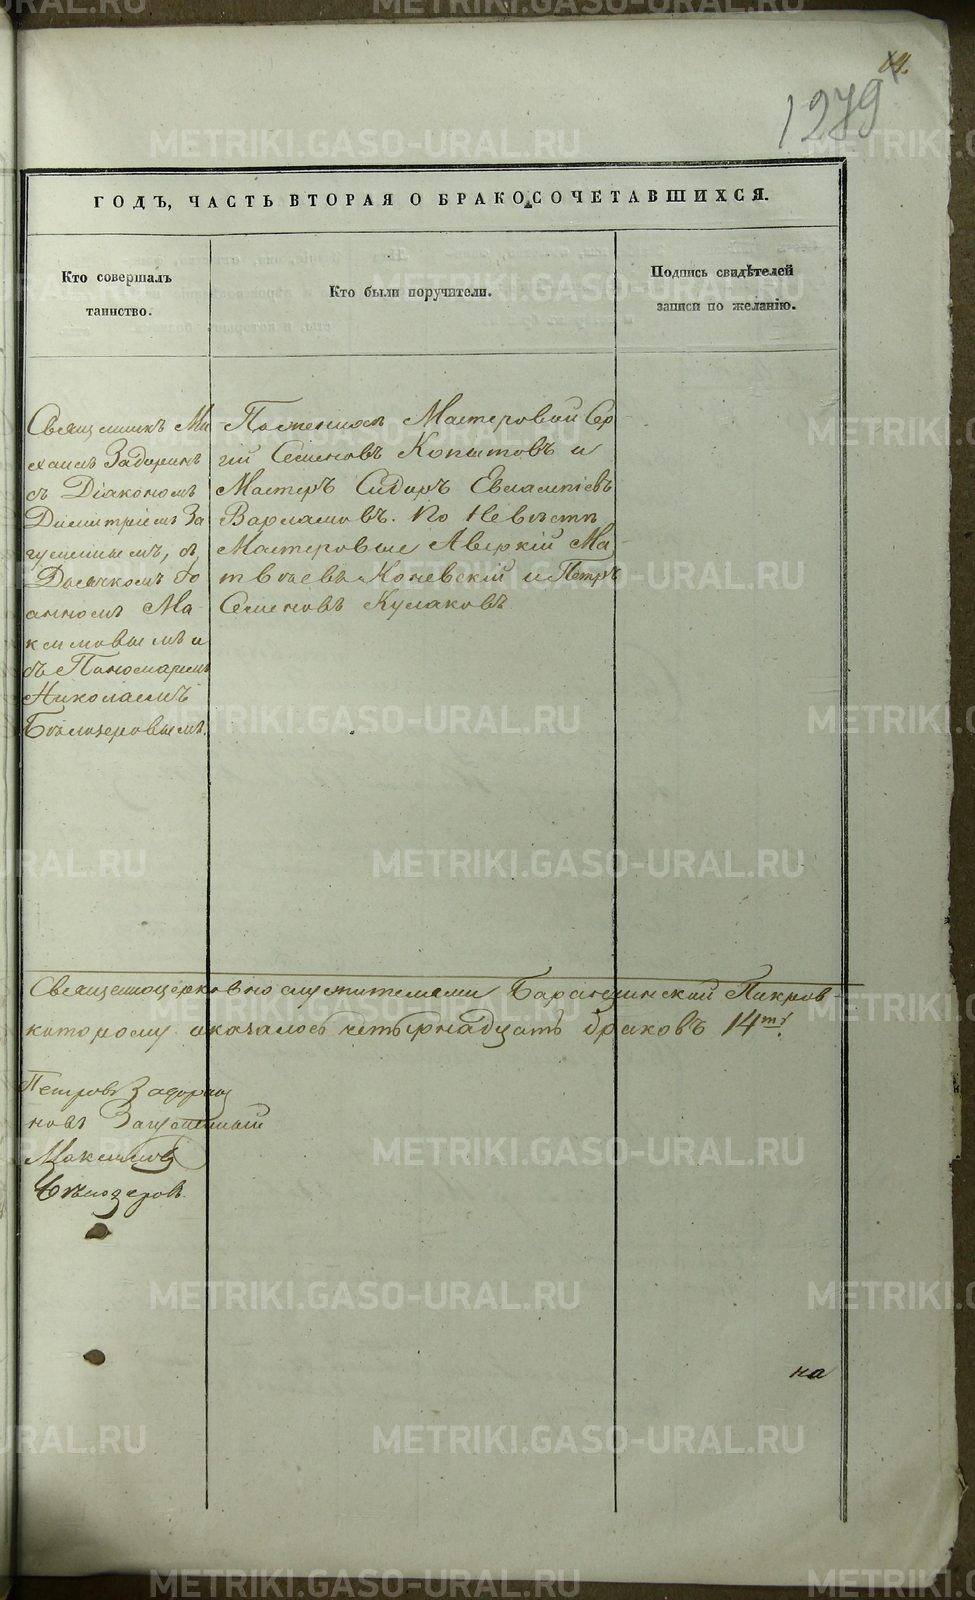 1279
ГОДЪ, ЧАСТЬ ВТОРАЯ О БРАКОСОЧЕТАВШИХСЯ.
Кто совершалъ
таинство.
Кто были поручители.
Подпись свидѣтелей
записи по желанію.
Священникъ Ми
хаилъ Задоринъ
съ Діакономъ
Димитріемъ За
гуменнымъ, съ
Дьячкомъ Іо
анномъ Ма-
ксимовымъ и
съ Пономаремъ
Николаемъ
Бѣлозеровымъ.
По женихѣ Мастеровой Сер
гій Семеновъ Копытовъ и
Мастеръ Сидоръ Евлампіевъ
Варламовъ. По Невѣстѣ
Мастеровые Аверкій Ма
твѣевъ Коневскій и Петръ
Семеновъ Кулаковъ
Священноцерковнослужителями Баранчинской Покров-
которому оказалось четырнадцать браковъ 14ть
Петровъ Задорин
новъ Загуменный
Максимовъ
Бѣлозеровъ
на
METRIKI.GASO-URAL.RU